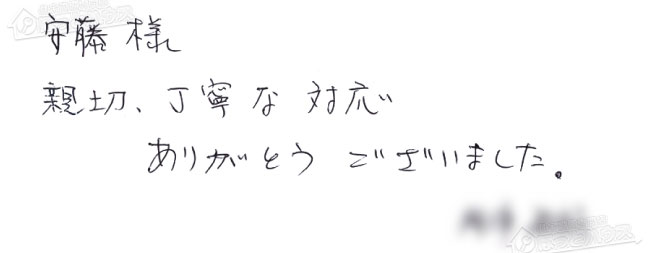 安藤様
親切、丁寧な対応
ありがとうございました。